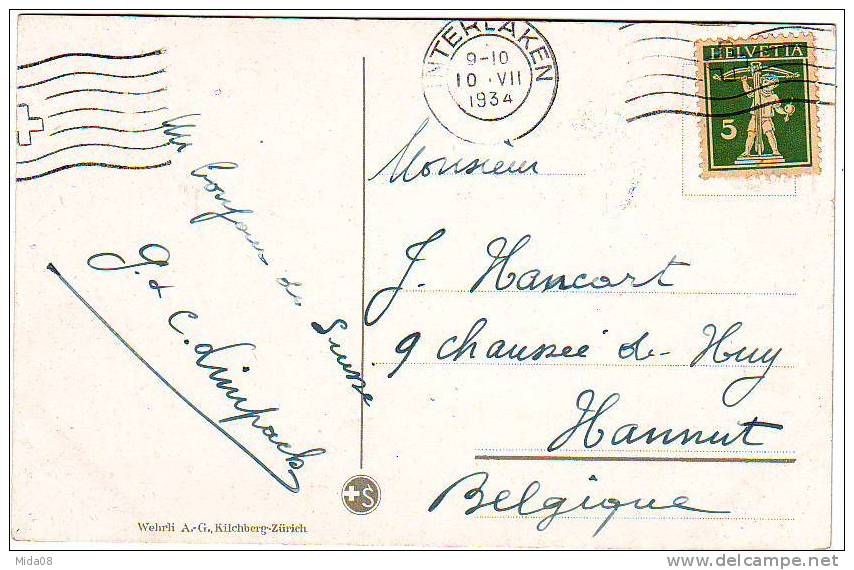 INTERLAKEN
9-10
10·VII
1934
HELVETIA
5
Un bonjour de Suisse
G. & C. Limpach
Monsieur
J. Hancart
9 chaussée de Huy
Hannut
Belgique
+S
Wehrli A.-G., Kilchberg-Zürich
Mida08
delcampe.net